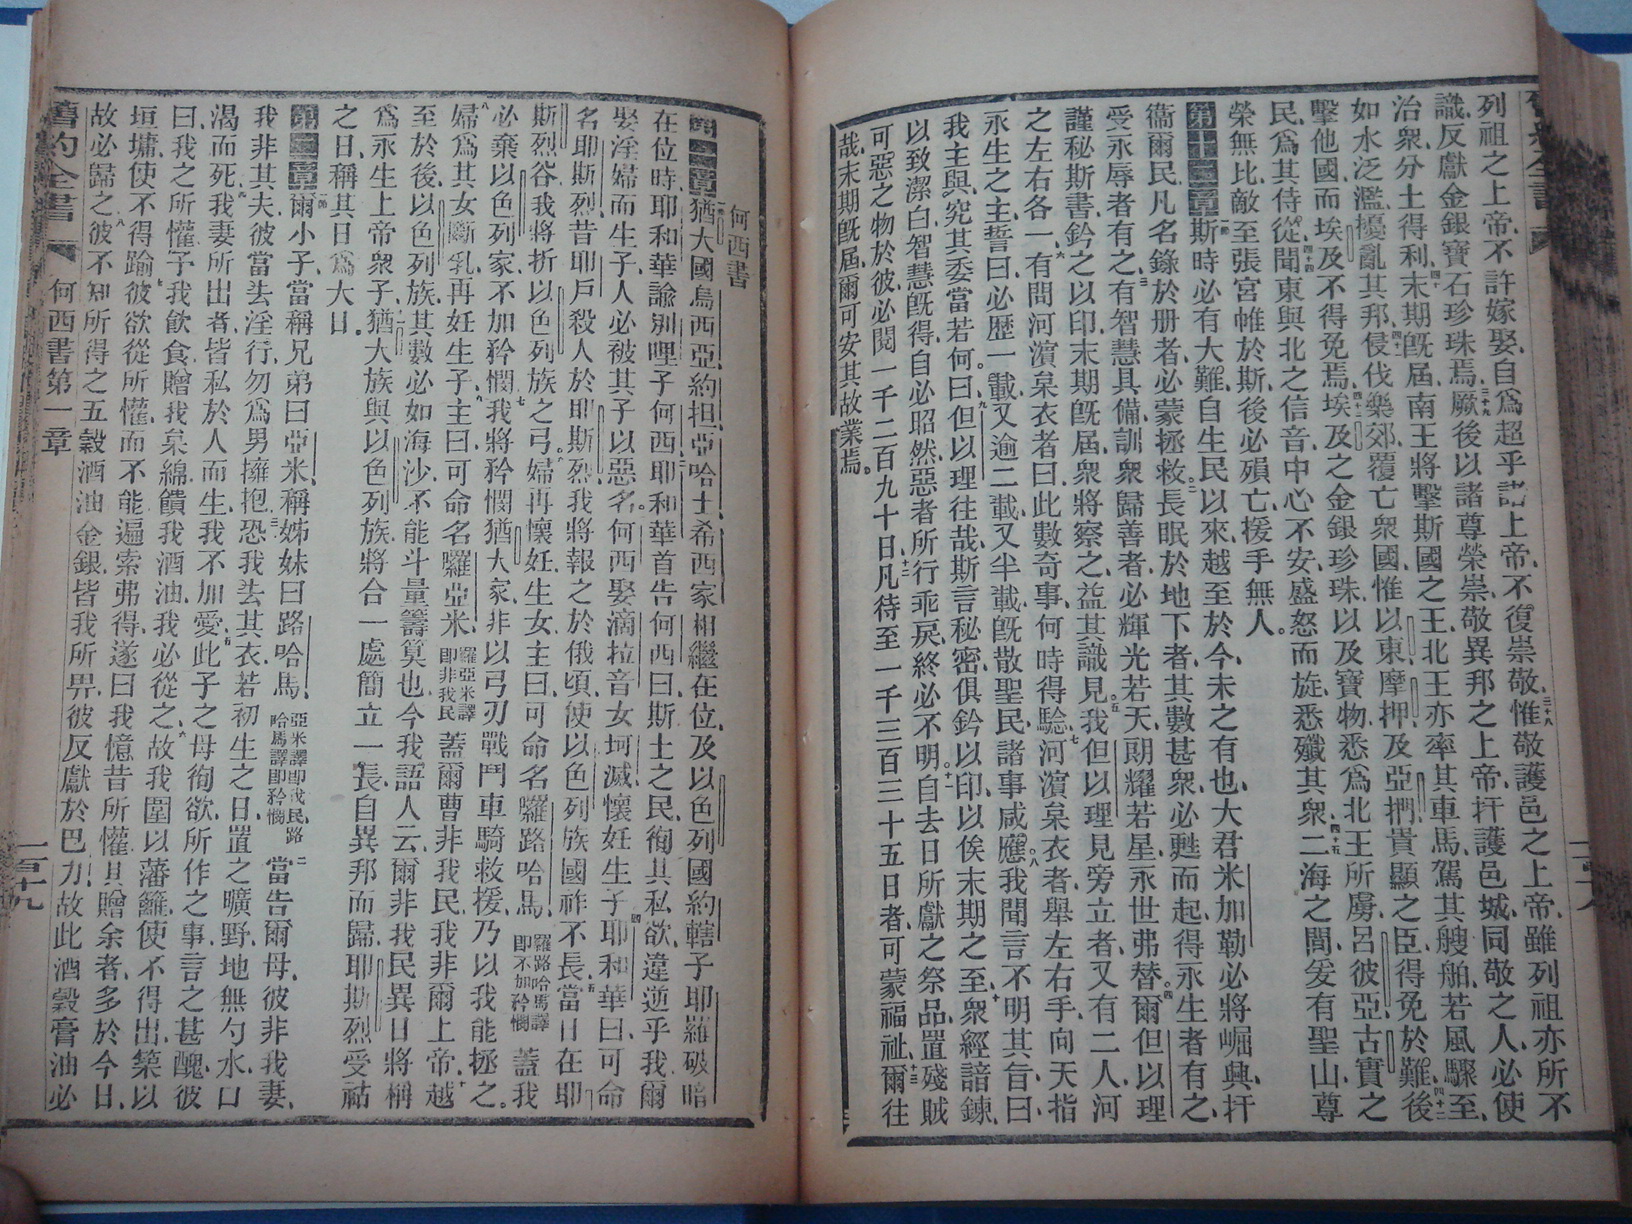 列祖之上帝、不許嫁娶、自爲超乎諸上帝、不復崇敬、三十八惟敬護邑之上帝、雖列祖亦所不
識、反獻金銀寶石珍珠焉、三十九厥後以諸尊榮、崇敬異邦之上帝、扞護邑城、同敬之人、必使
治衆、分土得利、四十末期旣屆、南王將擊斯國之王、北王亦率其車馬、駕其艘舶、若風驟至、
如水泛濫、擾亂其邦、四十一侵伐樂郊、覆亡衆國、惟以東摩押、及亞捫貴顯之臣、得免於難、四十二後
擊他國、而埃及不得免焉、四十三埃及之金銀珍珠、以及寶物、悉爲北王所虜、呂彼亞古實之
民、爲其侍從、四十四聞東與北之信音、中心不安、盛怒而旋、悉殲其衆、四十五二海之間、爰有聖山、尊
榮無比、敵至張宮帷於斯、後必殞亡、援手無人。
第十二章一節斯時必有大難、自生民以來、越至於今、未之有也、大君米加勒必將崛興、扞
衞爾民、凡名錄於册者、必蒙拯救、二長眠於地下者、其數甚衆、必甦而起、得永生者有之、
受永辱者有之、三有智慧具備、訓衆歸善者、必輝光若天、朗耀若星、永世弗替。四爾但以理
謹秘斯書、鈐之以印、末期旣屆、衆將察之、益其識見。五我但以理見旁立者、又有二人、河
之左右各一、六有問河濱枲衣者曰、此數奇事、何時得騐、七河濱枲衣者、舉左右手、向天指
永生之主、誓曰、必歷一載、又逾二載、又半載、旣散聖民、諸事咸應、八我聞言、不明其旨、曰、
我主與、究其委當若何、九曰、但以理往哉、斯言秘密、俱鈐以印、以俟末期之至、十衆經諳鍊、
以致潔白、智慧旣得、自必昭然、惡者所行乖戾、終必不明、十一自去日所獻之祭品、置殘賊
可惡之物於彼、必閱一千二百九十日、十二凡待至一千三百三十五日者、可蒙福祉、十三爾往
哉、末期旣屆、爾可安其故業焉。
何西書
第一章一節猶大國烏西亞、約担、亞哈士、希西家、相繼在位、及以色列國約轄子耶羅破暗
在位時、耶和華諭別哩子何西、二耶和華首告何西曰、斯土之民、徇其私欲、違逆乎我、爾
娶淫婦而生子、人必被其子以惡名、三何西娶滴拉音女坷滅、懷妊生子、四耶和華曰、可命
名耶斯烈、昔耶戶殺人於耶斯烈、我將報之、於俄頃、使以色列族國祚不長、五當日在耶
斯烈谷、我將折以色列族之弓、六婦再懷妊、生女、主曰、可命名囉路哈馬、囉路哈馬譯卽不加矜憫 蓋我
必棄以色列家、不加矜憫、七我將矜憫猶大家、非以弓刃戰鬥車騎救援、乃以我能拯之。
八婦爲其女斷乳、再妊生子、九主曰、可命名囉亞米、羅亞米譯卽非我民 蓋爾曹非我民、我非爾上帝、十越
至於後、以色列族、其數必如海沙、不能斗量籌筭也、今我語人云、爾非我民、異日將稱
爲永生上帝衆子、十一猶大族與以色列族將合一處、簡立一長、自異邦而歸、耶斯烈受祜
之日、稱其日爲大日。
第二章一節爾小子、當稱兄弟曰亞米、稱姊妹曰路哈馬、亞米譯卽我民路哈馬譯卽矜憫 二當告爾母、彼非我妻、
我非其夫、彼當去淫行、勿爲男擁抱、三恐我去其衣、若初生之日、置之曠野、地無勺水、口
渴而死、四我妻所出者、皆私於人而生、我不加愛、五此子之母徇欲、所作之事、言之甚醜、彼
曰、我之所懽、予我飮食、贈我枲綿、饋我酒油、我必從之、六故我圍以藩籬、使不得出、築以
垣墉、使不得踰、七彼欲從所懽、而不能遍索弗得、遂曰、我憶昔所懽、其贈余者、多於今日、
故必歸之、八彼不知所得之五穀酒油金銀、皆我所畀、彼反獻於巴力、故此酒穀膏油、必
舊約全書 何西書第一章